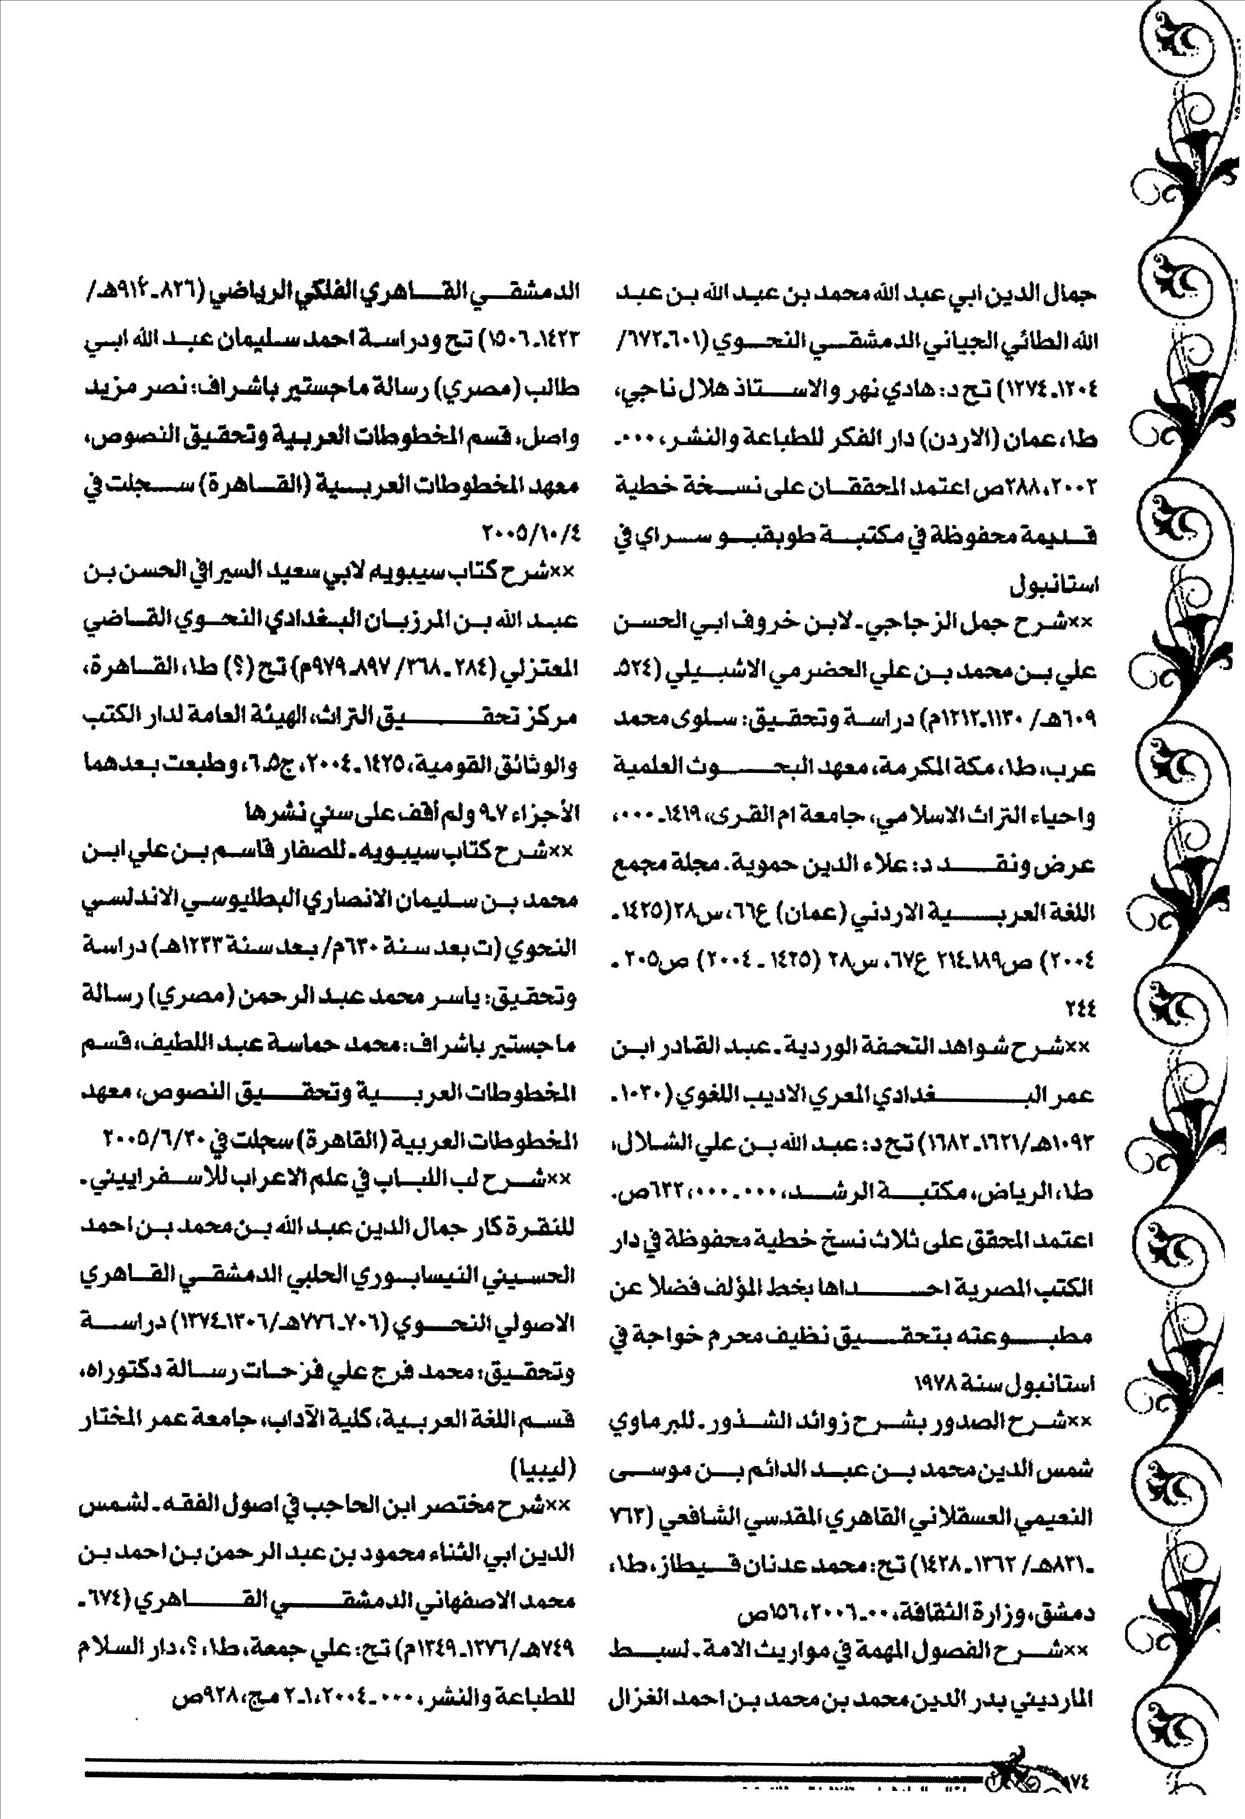 جمال الدين ابي عبد الله محمد بن عبد الله بن عبد
الله الطائي الجياني الدمشقي النحوي (٦٠١ـ٦٧٢/
١٢٠٤ـ١٢٧٤) تح د: هادي نهر والاستاذ هلال ناجي،
ط١، عمان (الاردن) دار الفكر للطباعة والنشر، ٠٠٠ـ
٢٠٠٢، ٢٨٨ص اعتمد المحققان على نسخة خطية
قديمة محفوظة في مكتبة طوبقبو سراي في
استانبول
××شرح جمل الزجاجي ـ لابن خروف ابي الحسن
علي بن محمد بن علي الحضرمي الاشبيلي (٥٢٤ـ
٦٠٩هـ/ ١١٣٠ـ١٢١٢م) دراسة وتحقيق: سلوى محمد
عرب، ط١، مكة المكرمة، معهد البحوث العلمية
واحياء التراث الاسلامي، جامعة ام القرى، ١٤١٩ـ ٠٠٠،
عرض ونقد د: علاء الدين حموية ـ مجلة مجمع
اللغة العربية الاردني (عمان) ع٦٦، س٢٨ (١٤٢٥ ـ
٢٠٠٤) ص١٨٩ـ٢١٤ ع٦٧، س٢٨ (١٤٢٥ ـ ٢٠٠٤) ص٢٠٥ ـ
٢٤٤
××شرح شواهد التحفة الوردية ـ عبد القادر ابن
عمر البغدادي المعري الاديب اللغوي (١٠٣٠ ـ
١٠٩٣هـ/١٦٢١ـ ١٦٨٢) تح د: عبد الله بن علي الشلال،
ط١، الرياض، مكتبة الرشد، ٠٠٠ـ ٠٠٠، ٦٣٢ص.
اعتمد المحقق على ثلاث نسخ خطية محفوظة في دار
الكتب المصرية احداها بخط المؤلف فضلا عن
مطبوعته بتحقيق نظيف محرم خواجة في
استانبول سنة ١٩٧٨
××شرح الصدور بشرح زوائد الشذور ـ للبرماوي
شمس الدين محمد بن عبد الدائم بن موسى
النعيمي العسقلاني القاهري المقدسي الشافعي (٧٦٣
ـ٨٣١هـ/ ١٣٦٢ـ ١٤٢٨) تح: محمد عدنان قيطاز، ط١،
دمشق، وزارة الثقافة، ٠٠ـ ٢٠٠٦، ١٥٦ص
××شرح الفصول المهمة في مواريث الامة ـ لسبط
المارديني بدر الدين محمد بن محمد بن احمد الغزال
الدمشقي القاهري الفلكي الرياضي (٨٢٦ـ ٩١٢هـ/
١٤٢٣ـ ١٥٠٦) تح ودراسة احمد سليمان عبد الله ابي
طالب (مصري) رسالة ماجستير باشراف: نصر مزيد
واصل، قسم المخطوطات العربية وتحقيق النصوص،
معهد المخطوطات العربية (القاهرة) سجلت في
٢٠٠٥/١٠/٤
××شرح كتاب سيبويه لابي سعيد السيرافي الحسن بن
عبد الله بن المرزبان البغدادي النحوي القاضي
المعتزلي (٢٨٤ ـ ٣٦٨/ ٨٩٧ ـ ٩٧٩م) تح (؟) ط١، القاهرة،
مركز تحقيق التراث، الهيئة العامة لدار الكتب
والوثائق القومية، ١٤٢٥ـ ٢٠٠٤، ج٥ـ٦، وطبعت بعدهما
الأجزاء ٧ـ٩ ولم أقف على سني نشرها
××شرح كتاب سيبويه ـ للصفار قاسم بن علي ابن
محمد بن سليمان الانصاري البطليوسي الاندلسي
النحوي (ت بعد سنة ٦٣٠م/ بعد سنة ١٢٣٣هـ) دراسة
وتحقيق: ياسر محمد عبد الرحمن (مصري) رسالة
ماجستير باشراف: محمد حماسة عبد اللطيف، قسم
المخطوطات العربية وتحقيق النصوص، معهد
المخطوطات العربية (القاهرة) سجلت في ٢٠٠٥/٦/٣٠
××شرح لب اللباب في علم الاعراب للاسفراييني ـ
للنقرة كار جمال الدين عبد الله بن محمد بن احمد
الحسيني النيسابوري الحلبي الدمشقي القاهري
الاصولي النحوي (٧٠٦ـ ٧٧٦هـ/١٣٠٦ـ ١٣٧٤) دراسة
وتحقيق: محمد فرج علي فرحات رسالة دكتوراه،
قسم اللغة العربية، كلية الآداب، جامعة عمر المختار
(ليبيا)
××شرح مختصر ابن الحاجب في اصول الفقه ـ لشمس
الدين ابي الثناء محمود بن عبد الرحمن بن احمد بن
محمد الاصفهاني الدمشقي القاهري (٦٧٤ ـ
٧٤٩هـ/١٢٧٦ـ ١٣٤٩م) تح: علي جمعة، ط١، ؟، دار السلام
للطباعة والنشر، ٠٠٠ـ ٢٠٠٤، ١ـ ٢ مج، ٩٢٨ص
٧٤